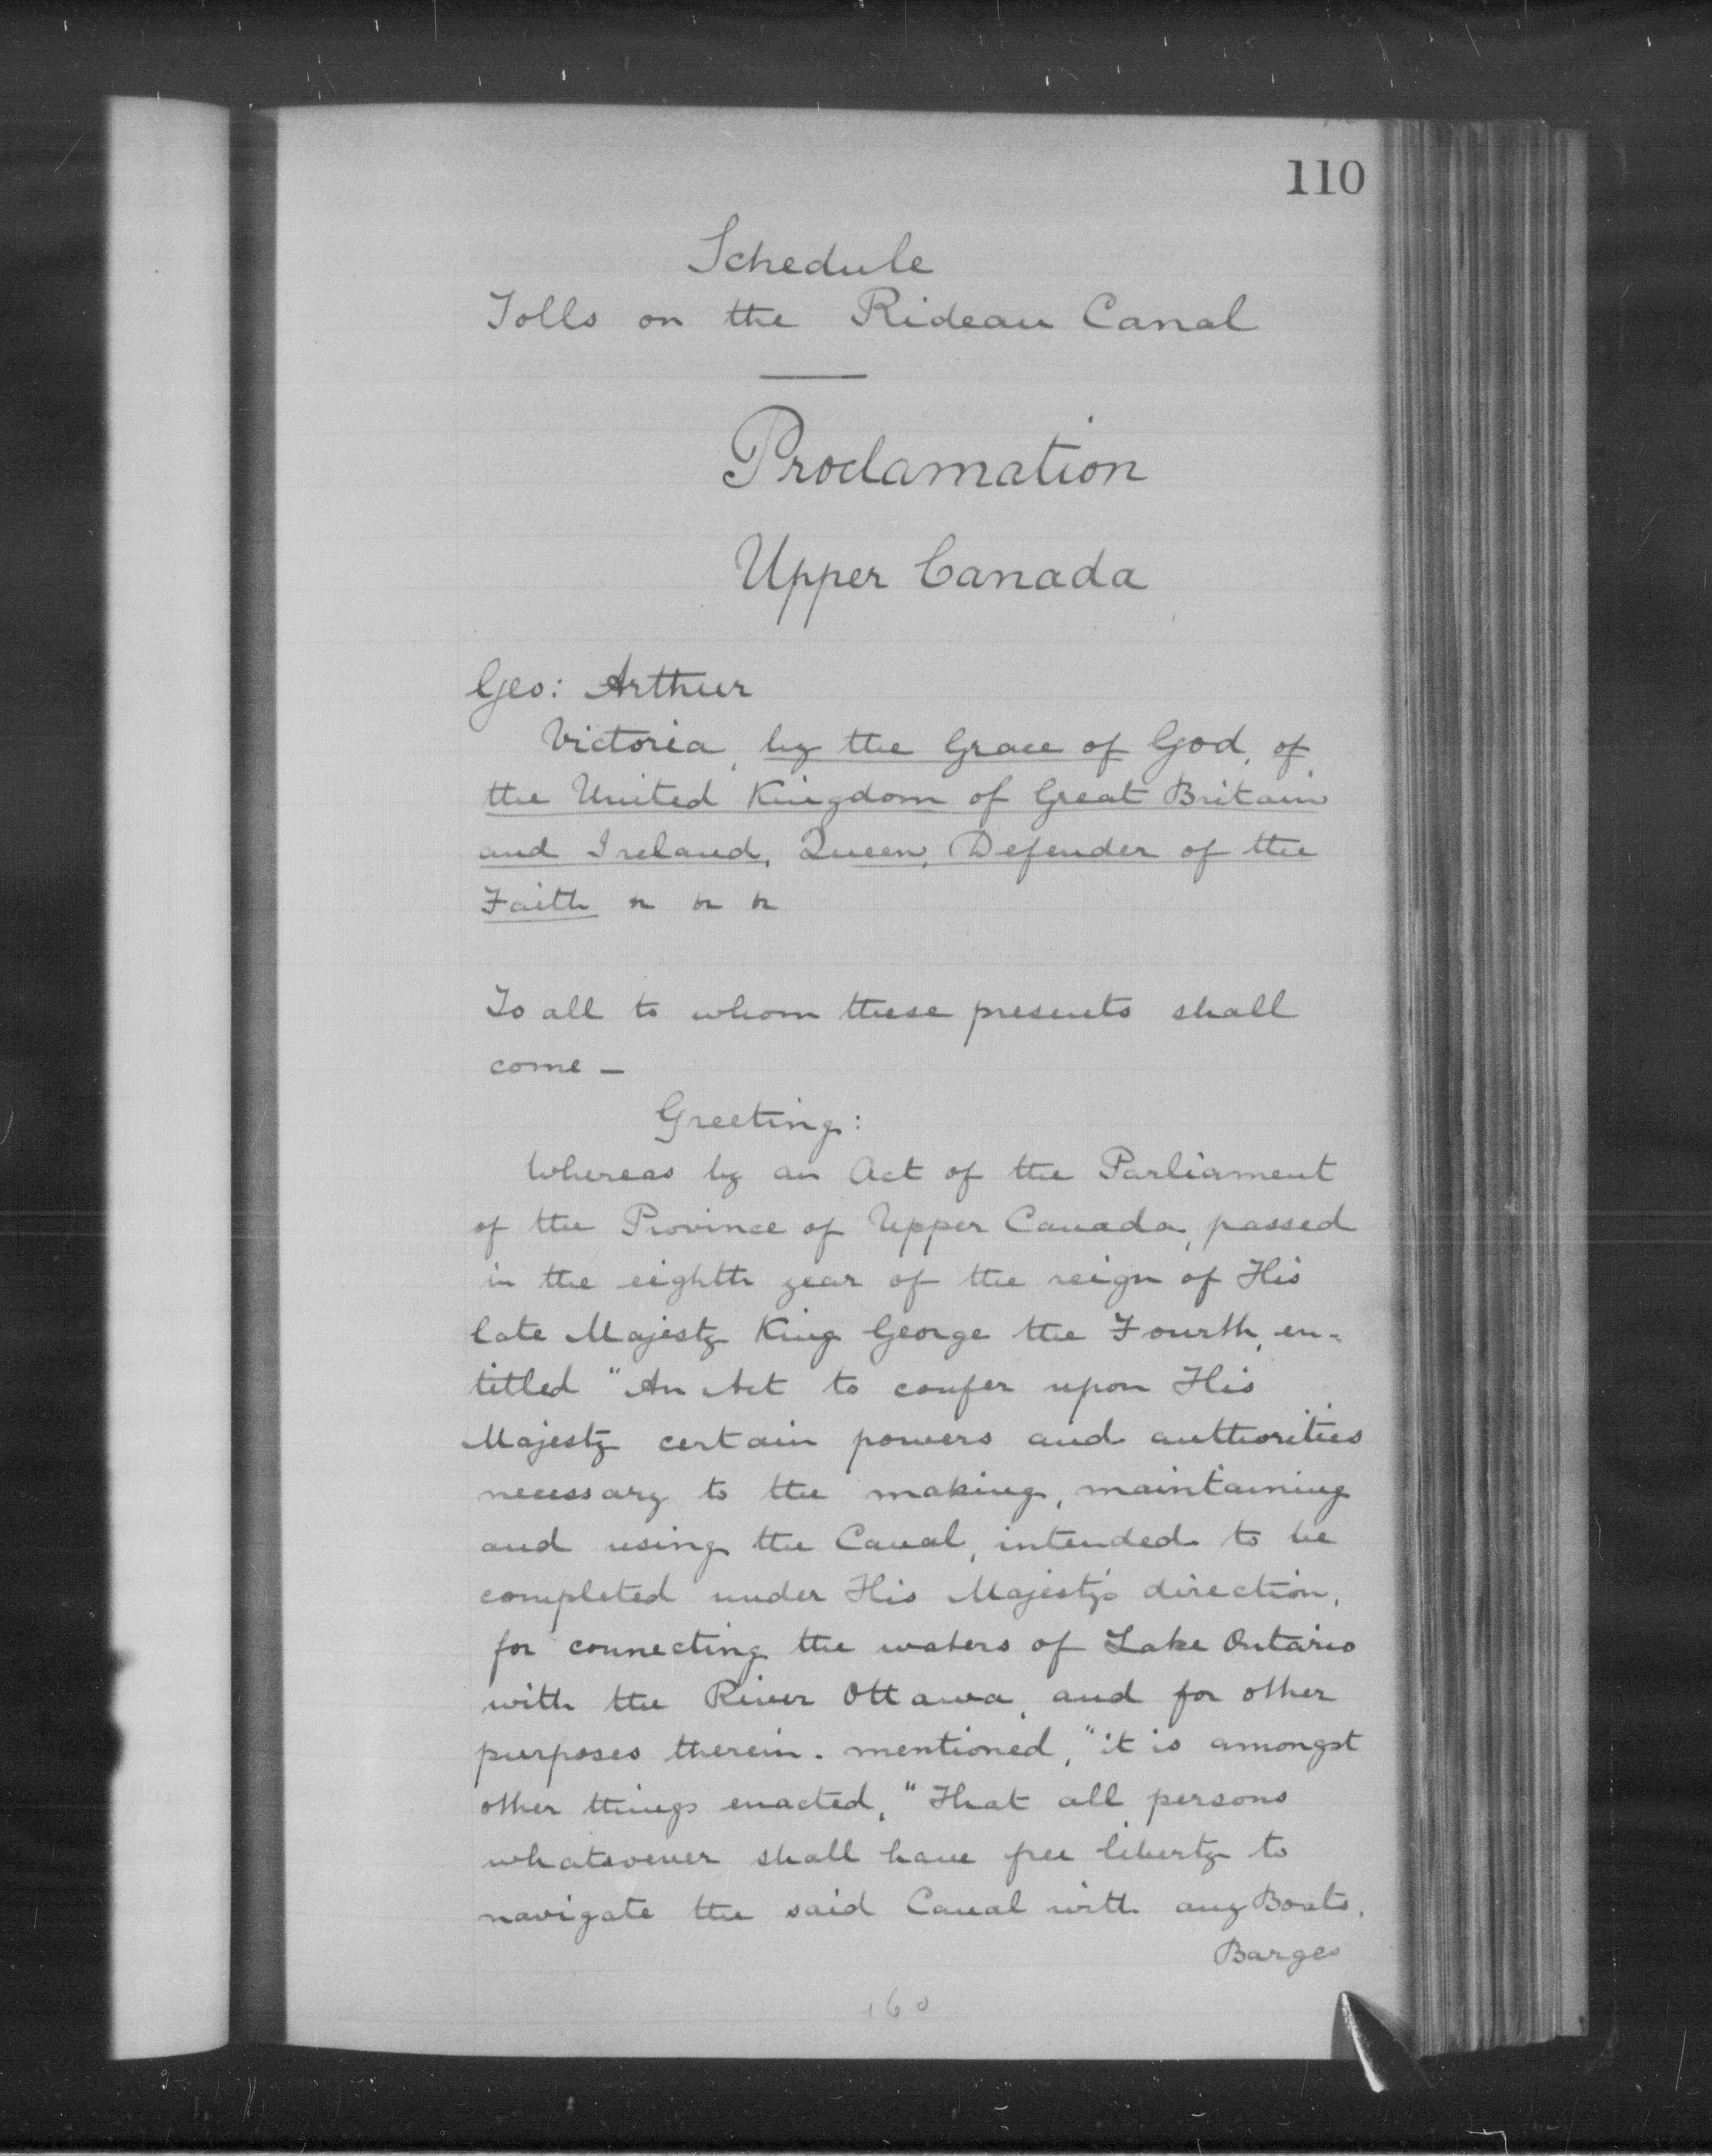 110
Schedule
Tolls on the Rideau Canal
Proclamation
Upper Canada
Geo: Arthur
Victoria, by the Grace of God, of
the United Kingdom of Great Britain
and Ireland, Queen, Defender of the
Faith &c &c &c
To all to whom these presents shall
come —
Greeting:
Whereas by an Act of the Parliament
of the Province of Upper Canada, passed
in the eighth year of the reign of His
late Majesty King George the Fourth, en-
titled "An Act to confer upon His
Majesty certain powers and authorities
necessary to the making, maintaining
and using the Canal, intended to be
completed under His Majesty's direction,
for connecting the waters of Lake Ontario
with the River Ottawa, and for other
purposes therein. mentioned, "it is amongst
other things enacted, "That all persons
whatsoever shall have free liberty to
navigate the said Canal with any Boats,
Barges
160